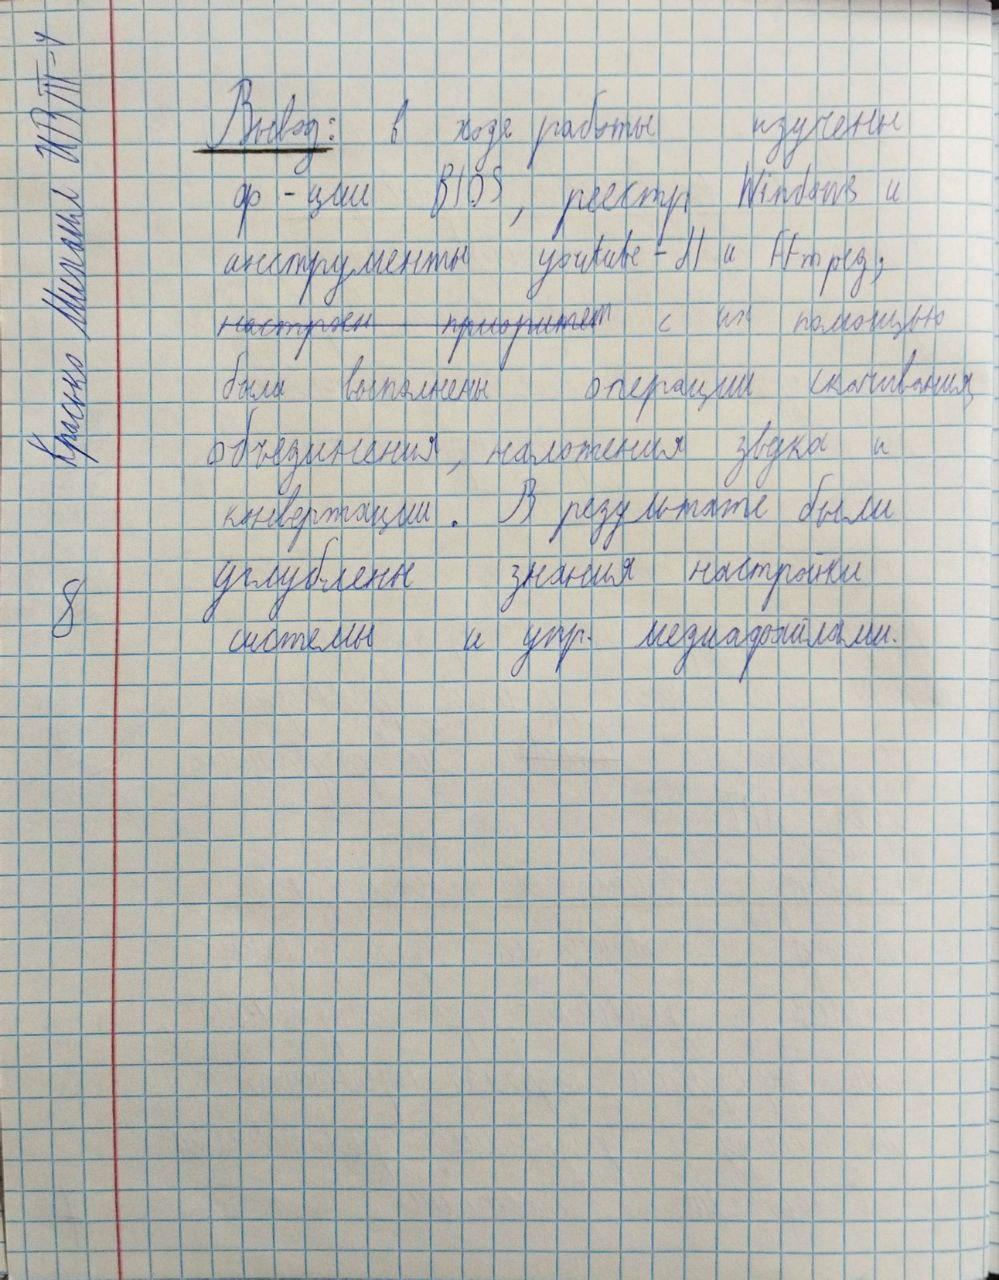 Вывод: в ходе работы изучены
ф-ции BIOS, реестр Windows и
инструменты youtube-dl и ffmpeg,
настроен приоритет с их помощью
были выполнены операции скачивания
объединения, наложения звука и
конвертации. В результате были
углублены знания настройки
системы и упр. медиафайлами.
Михаил
8